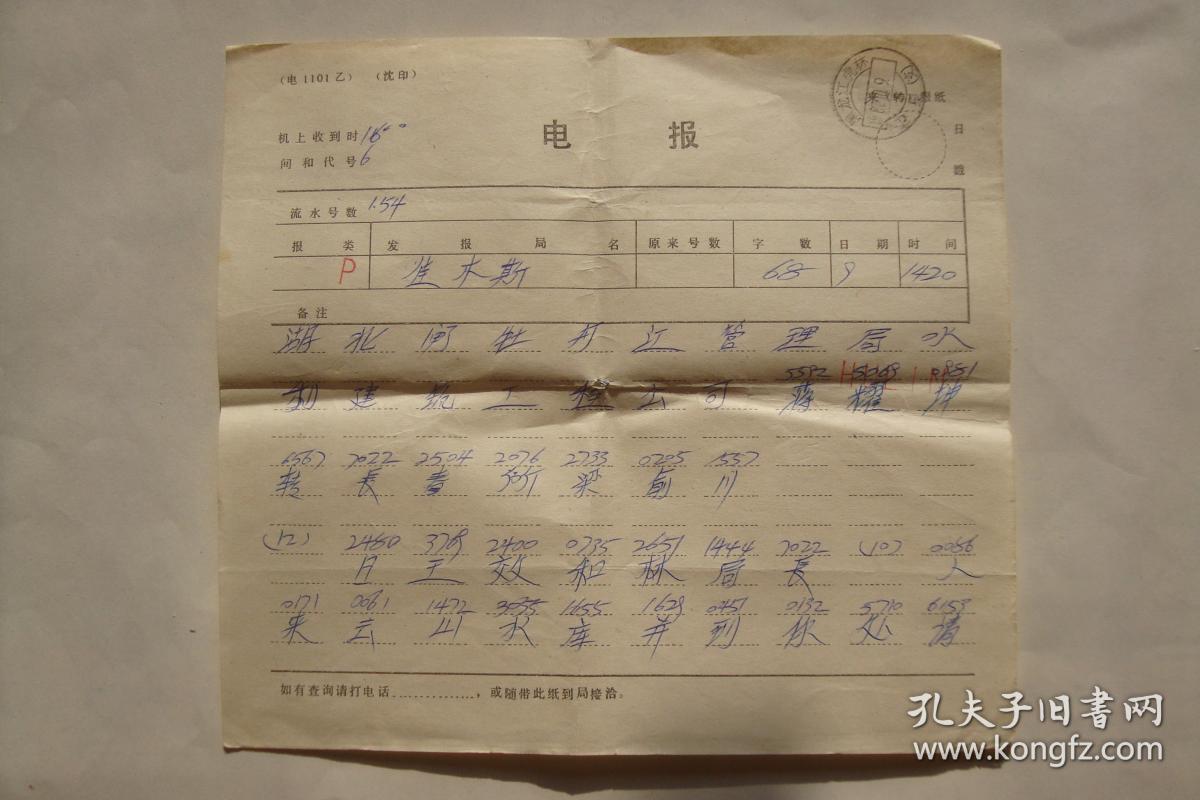 (电1101乙) (沈印)
机上收到时
间和代号 6
电 报
日
戳
流水号数 154
报类 发报局名 原来号数 字数 日期 时间
P 佳木斯 68 9 1420
备注
湖北 牡丹江管理局水
5592 5069 0981
利建筑工程公司蒋耀坤
6567 7022 2504 2076 2733 0205 1557
转長春 梁俞川
(12) 2480 3769 2400 0735 2651 1444 7022 (10) 0086
日王效和林局長 人
0171 0061 1472 3055 1655 1629 0451 0132 5710 6153
来云山水库并到你处请
如有查询请打电话..............，或随带此纸到局接洽。
孔夫子旧書网
www.kongfz.com